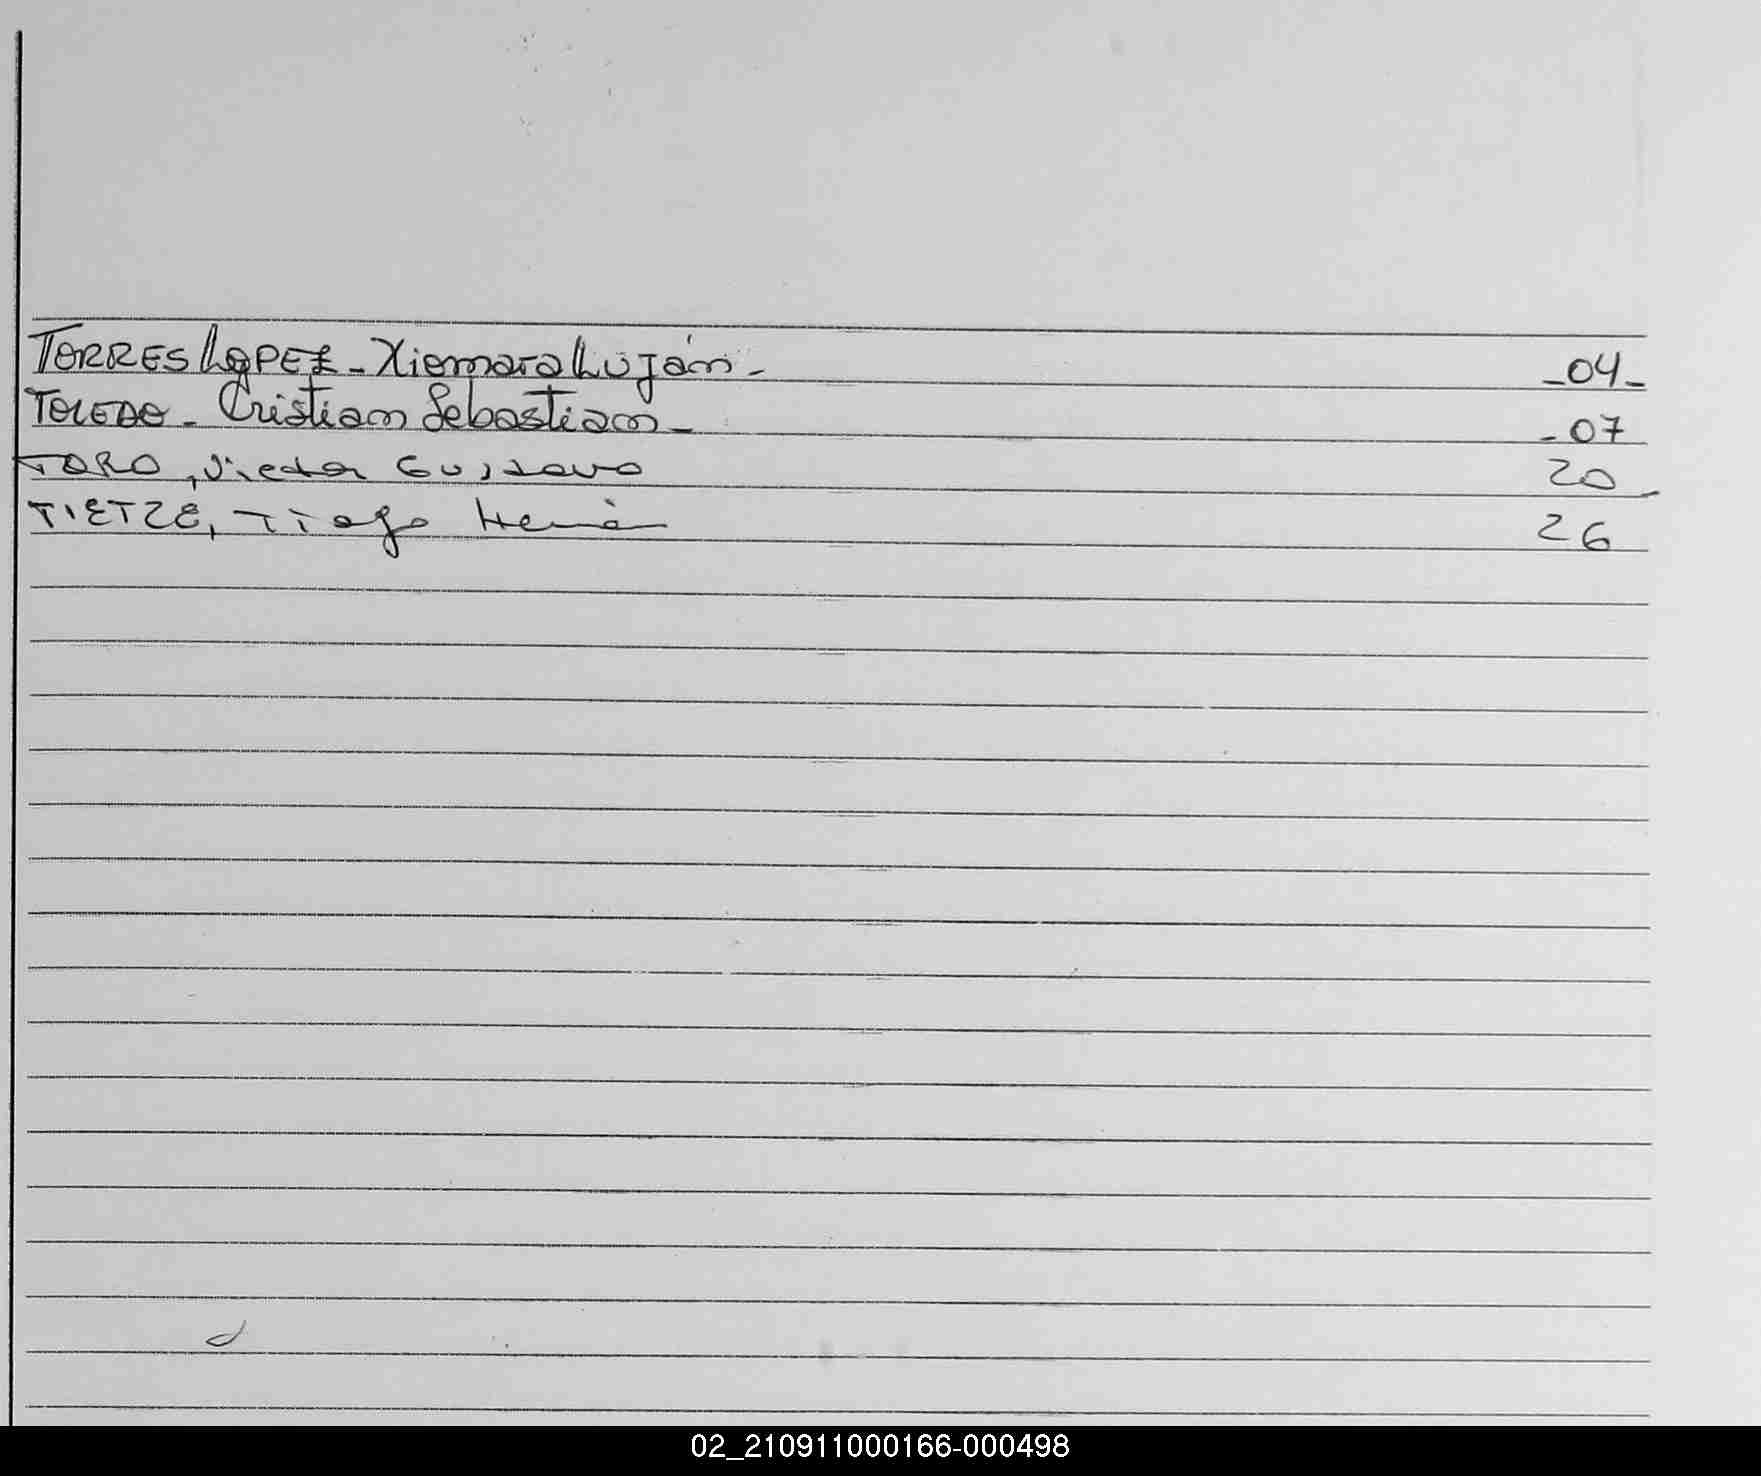 TORRES LOPEZ - Xiomara Luján - -04-
TOLEDO - Cristian Sebastian - -07
TORO, Victor Gustavo 20
TIETZE, Tiago Hernán 26
02_210911000166-000498